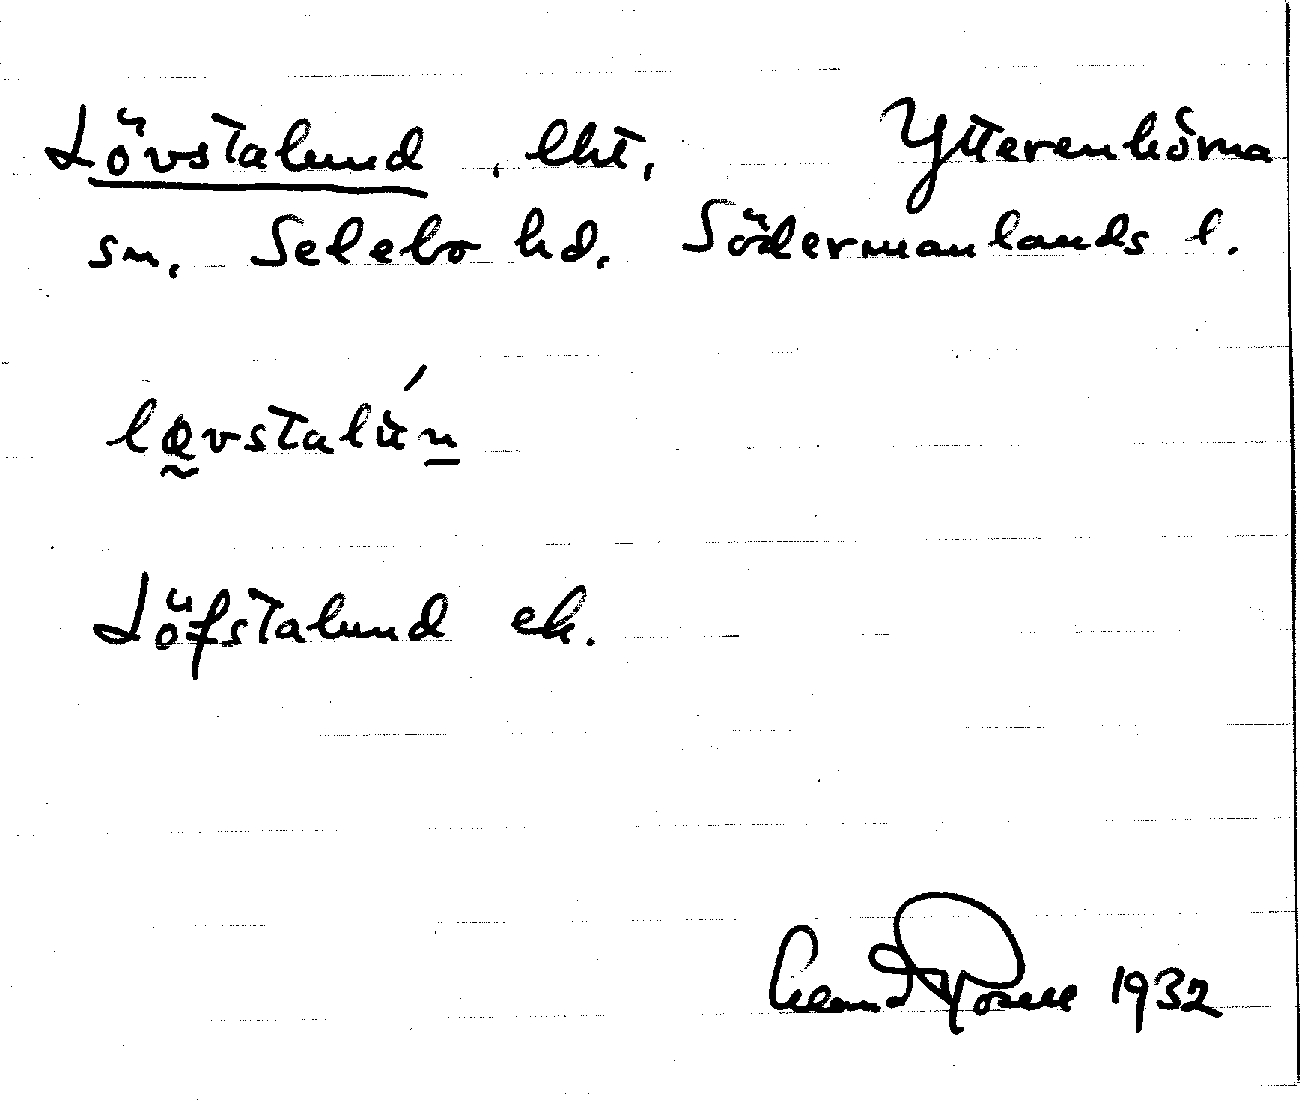 Lövstalund, lht, Ytterenhörna
sn. Selebo hd. Södermanlands l.
lǫvstalún
Löfstalund ek.
1932